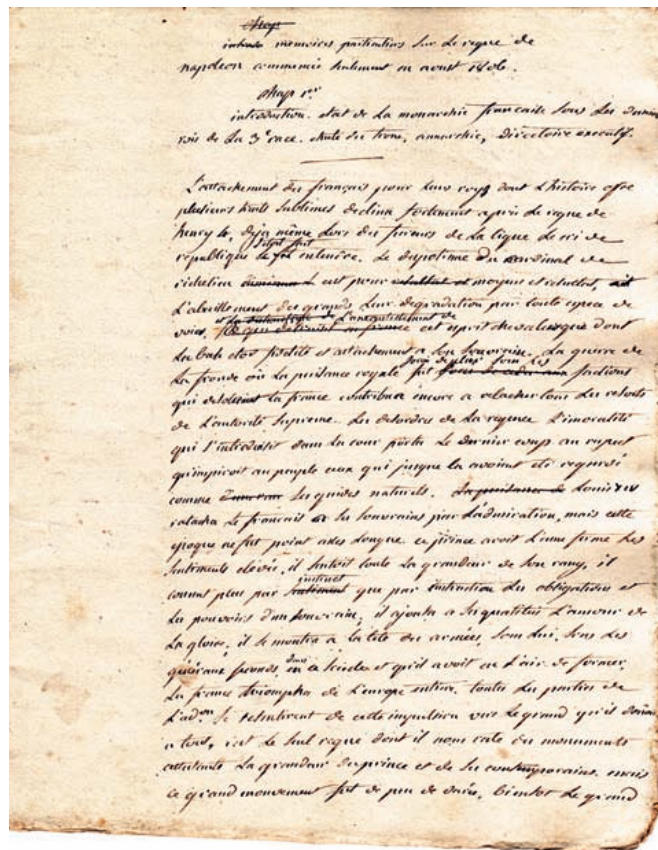 chap
mémoires particuliers sur le regne de
napoleon commencée seulement en aoust 1806.
chap 1er
introduction. etat de la monarchie française sous les derniers
rois de la 3e race. chute du trone, annarchie, directoire executif.
L'attachement des français pour leurs roys dont l'histoire offre
plusieurs traits sublimes declina fortement après le regne de
henry 4, deja même lors des fureurs de la ligue le cri de
république s'etait fait entendre. Le despotisme du cardinal de
richelieu eut pour moyens et resultats,
L'abrutissement des grands leur degradation par toute espece de
voies, et l'aneantissement de cet esprit chevaleresque dont
La base etoit fidelité et attachement a son souverain. La guerre de
La fronde où la puissance royale fut factions
qui desoloient la france contribua encore a relacher tous les ressorts
de L'autorité supreme. Les desordres de La regence L'imoralité
qui s'introduisit dans la cour porta le dernier coup au respect
qu'inspiroit au peuple ceux qui jusque la avoient eté regardé
comme ses guides naturels. La puissance de Louis XIV
ratacha le français a ses souverains par L'admiration, mais cette
epoque ne fut point assés longue ce prince avoit L'ame ferme les
sentiments elevés, il sentoit toute la grandeur de son rang, il
connut plus par sentiment instinct que par instruction les obligations et
les pouvoirs d'un souverain, il ajouta a ses qualités L'amour de
La gloire, il se montra a la tete des armées, sous lui, sous les
généraux formés dans ce siecle et qu'il avoit eu L'air de former,
La france triompha de L'europe entiere, toutes les parties de
L'adon se ressentirent de cette impulsion vers Le grand qu'il donna
a tout, c'est le seul regne dont il nous reste des monuments
attestants La grandeur du prince et de ses contemporains. mais
ce grand mouvement fut de peu de durée, bientot Le grand